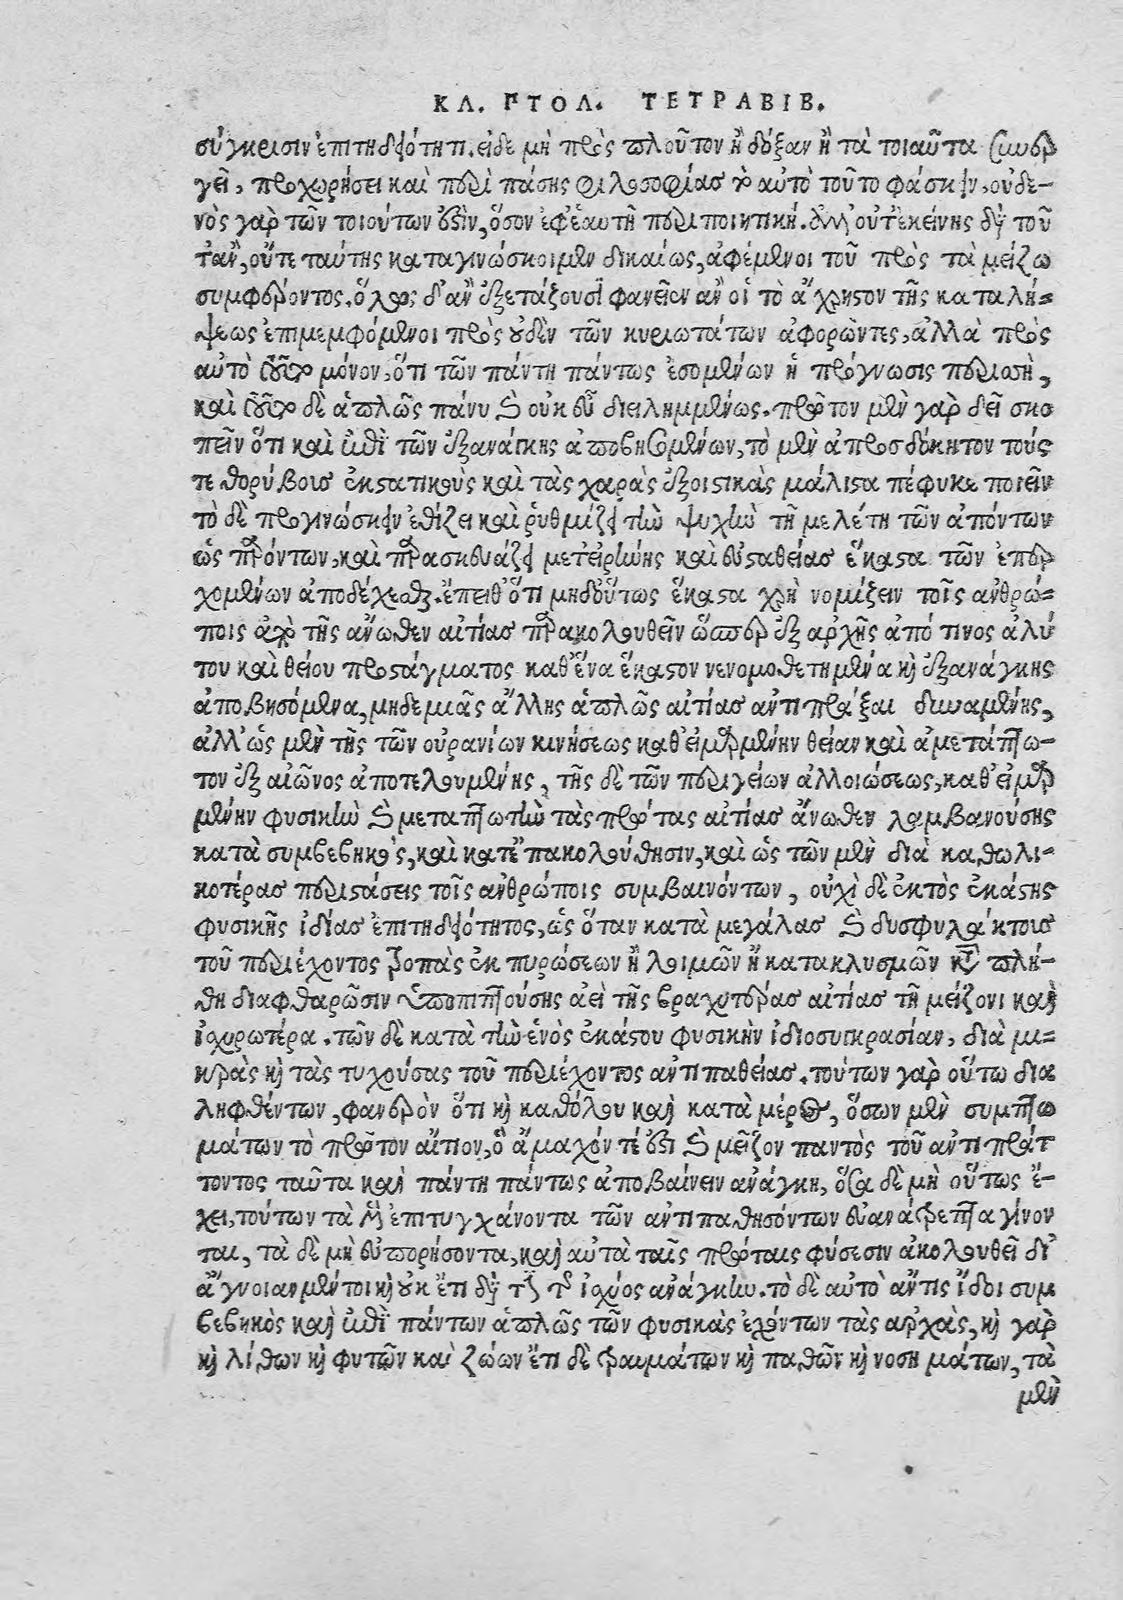 ΚΛ. ΠΤΟΛ. ΤΕΤΡΑΒΙΒ.
σύγκρισιν ἐπιτηδειότητι. εἰ δὲ μὴ πρὸς πλοῦτον ἢ δόξαν ἢ τὰ τοιαῦτα συνερ
γεῖ, προχωρήσει καὶ περὶ πάσης φιλοσοφίας τὸ αὐτὸ τοῦτο φάσκειν, οὐδε-
νὸς γὰρ τῶν τοιούτων ἐστὶν, ὅσον ἐφ' ἑαυτῇ περιποιητική. ἀλλ' οὔτ' ἐκείνης διὰ τοῦ
τ' ἂν, οὔτε ταύτης καταγινώσκοιμεν δικαίως, ἀφέμενοι τοῦ πρὸς τὰ μείζω
συμφέροντος. ὅλως δ' ἂν ἐξετάζουσι φανεῖεν ἂν οἱ τὸ ἄχρηστον τῆς καταλή-
ψεως ἐπιμεμφόμενοι πρὸς οὐδὲν τῶν κυριωτάτων ἀφορῶντες, ἀλλὰ πρὸς
αὐτὸ τοῦτο μόνον, ὅτι τῶν πάντη πάντως ἐσομένων ἡ πρόγνωσις περισσὴ,
καὶ τοῦτο δὲ ἁπλῶς πάνυ καὶ οὐκ εὖ διειλημμένως. πρῶτον μὲν γὰρ δεῖ σκο
πεῖν ὅτι καὶ ἐπὶ τῶν ἐξανάγκης ἀποβησομένων, τὸ μὲν ἀπροσδόκητον τούς
τε θορύβους ἐκστατικοὺς καὶ τὰς χαρὰς ἐξοιστικὰς μάλιστα πέφυκε ποιεῖν
τὸ δὲ προγινώσκειν ἐθίζει καὶ ῥυθμίζει τὴν ψυχὴν τῇ μελέτῃ τῶν ἀπόντων
ὡς παρόντων, καὶ παρασκευάζει μετ' εἰρήνης καὶ εὐσταθείας ἕκαστα τῶν ἐπερ
χομένων ἀποδέχεσθαι. ἔπειθ' ὅτι μηδ' οὕτως ἕκαστα χρὴ νομίζειν τοῖς ἀνθρώ-
ποις ἀπὸ τῆς ἄνωθεν αἰτίας παρακολουθεῖν ὥσπερ ἐξ ἀρχῆς ἀπό τινος ἀλύ
του καὶ θείου προστάγματος καθ' ἕνα ἕκαστον νενομοθετημένα καὶ ἐξανάγκης
ἀποβησόμενα, μηδεμιᾶς ἄλλης ἁπλῶς αἰτίας ἀντιπρᾶξαι δυναμένης,
ἀλλ' ὡς μὲν τῆς τῶν οὐρανίων κινήσεως καθ' εἱμαρμένην θείαν καὶ ἀμετάπτω-
τον ἐξ αἰῶνος ἀποτελουμένης, τῆς δὲ τῶν περιγείων ἀλλοιώσεως, καθ' εἱμαρ
μένην φυσικὴν καὶ μεταπτωτὴν τὰς πρώτας αἰτίας ἄνωθεν λαμβανούσης
κατὰ συμβεβηκὸς, καὶ κατ' ἐπακολούθησιν, καὶ ὡς τῶν μὲν διὰ καθολι-
κοτέρας περιστάσεις τοῖς ἀνθρώποις συμβαινόντων, οὐχὶ δὲ ἐκτὸς ἑκάστης
φυσικῆς ἰδίας ἐπιτηδειότητος, ὡς ὅταν κατὰ μεγάλας καὶ δυσφυλάκτους
τοῦ περιέχοντος τροπὰς ἐκ πυρώσεων ἢ λοιμῶν ἢ κατακλυσμῶν κατὰ πλή-
θη διαφθαρῶσιν ὑποπιπτούσης ἀεὶ τῆς βραχυτέρας αἰτίας τῇ μείζονι καὶ
ἰσχυροτέρᾳ. τῶν δὲ κατὰ τὴν ἑνὸς ἑκάστου φυσικὴν ἰδιοσυγκρασίαν, διὰ μι-
κρὰς καὶ τὰς τυχούσας τοῦ περιέχοντος ἀντιπαθείας. τούτων γὰρ οὕτω δια
ληφθέντων, φανερὸν ὅτι καὶ καθόλου καὶ κατὰ μέρος, ὅσων μὲν συμπτω
μάτων τὸ πρῶτον αἴτιον, ὃ ἄμαχόν τέ ἐστι καὶ μεῖζον παντὸς τοῦ ἀντιπράτ
τοντος ταῦτα καὶ πάντη πάντως ἀποβαίνειν ἀνάγκη, ὅσα δὲ μὴ οὕτως ἔ-
χει, τούτων τὰ μὲν ἐπιτυγχάνοντα τῶν ἀντιπαθησόντων εὐανάτρεπτα γίνον
ται, τὰ δὲ μὴ εὐπορήσοντα, καὶ αὐτὰ ταῖς πρώταις φύσεσιν ἀκολουθεῖ δι'
ἄγνοιαν μέντοι καὶ οὐκ ἔτι διὰ τὴν τῆς ἰσχύος ἀνάγκην. τὸ δὲ αὐτὸ ἄν τις ἴδοι συμ
βεβηκὸς καὶ ἐπὶ πάντων ἁπλῶς τῶν φυσικὰς ἐχόντων τὰς ἀρχὰς, καὶ γὰρ
καὶ λίθων καὶ φυτῶν καὶ ζώων ἔτι δὲ τραυμάτων καὶ παθῶν καὶ νοσημάτων, τὰ
μὲν